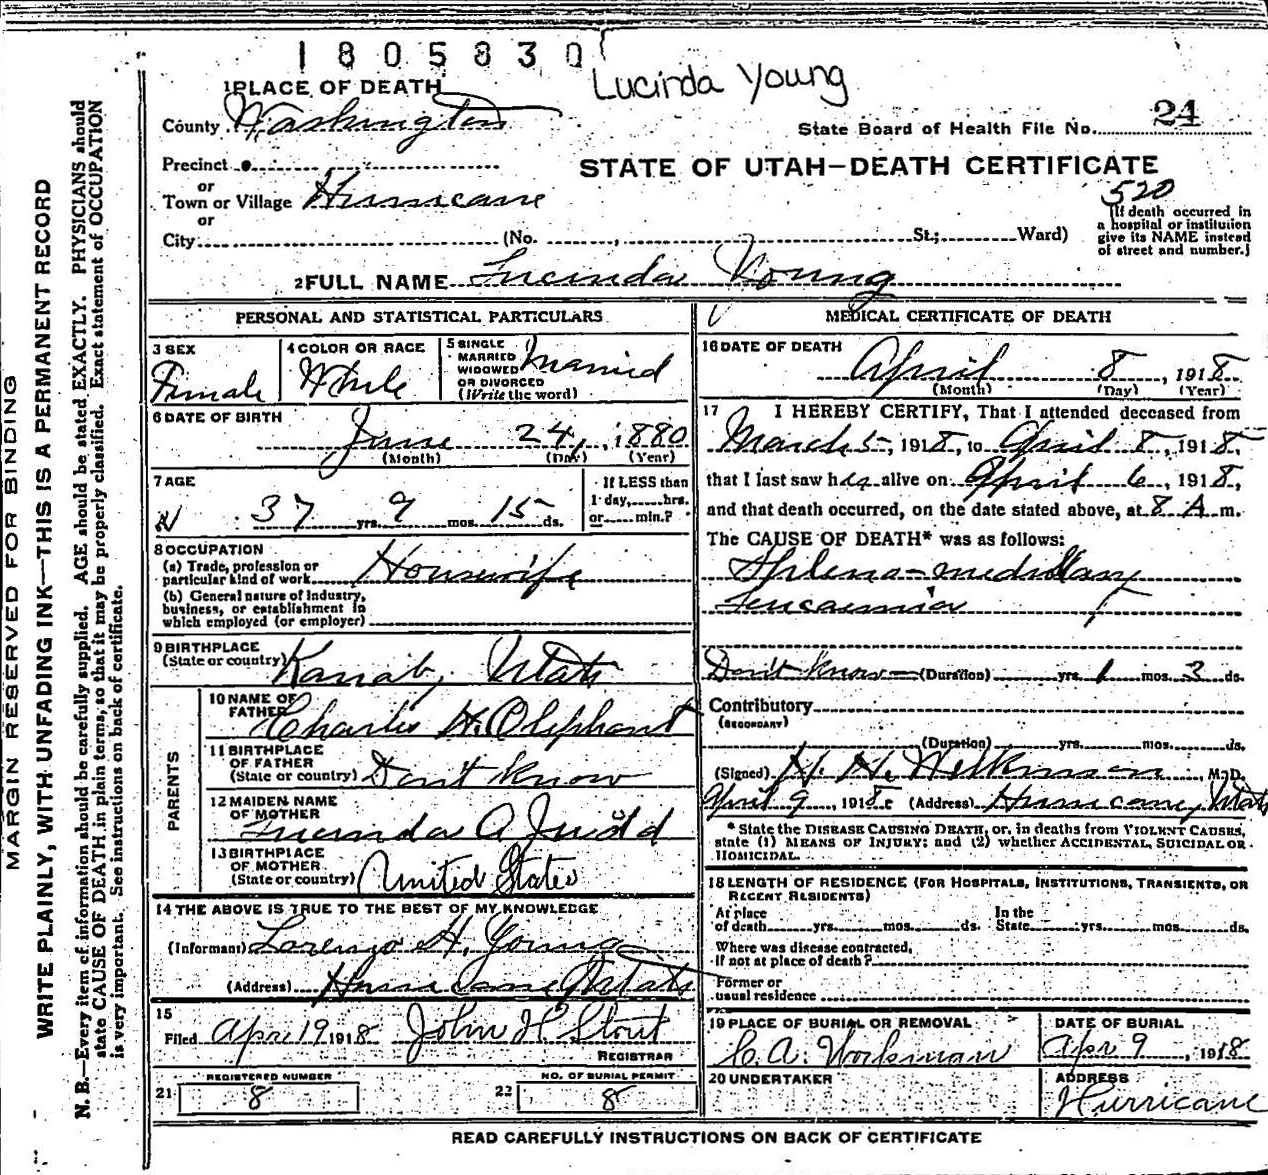 1805830
Lucinda Young
1 PLACE OF DEATH
County Washington
State Board of Health File No. 24
Precinct
STATE OF UTAH—DEATH CERTIFICATE
or
Town or Village Hurricane
520
or
City (No. , St.; Ward)
(If death occurred in
a hospital or institution
give its NAME instead
of street and number.)
2 FULL NAME Lucinda Young
PERSONAL AND STATISTICAL PARTICULARS
3 SEX
Female
4 COLOR OR RACE
White
5 SINGLE
MARRIED
WIDOWED
OR DIVORCED
(Write the word)
Married
6 DATE OF BIRTH
June 24, 1880
(Month) (Day) (Year)
7 AGE
37 yrs. 9 mos. 15 ds.
If LESS than
1 day, hrs.
or min.?
8 OCCUPATION
(a) Trade, profession or
particular kind of work Housewife
(b) General nature of Industry,
business, or establishment in
which employed (or employer)
9 BIRTHPLACE
(State or country) Kanab, Utah
PARENTS
10 NAME OF
FATHER Charles H. Oliphant
11 BIRTHPLACE
OF FATHER
(State or country) Don't Know
12 MAIDEN NAME
OF MOTHER
Lucinda A Judd
13 BIRTHPLACE
OF MOTHER
(State or country) United States
14 THE ABOVE IS TRUE TO THE BEST OF MY KNOWLEDGE
(Informant) Lorenzo H. Young
(Address) Hurricane Utah
15
Filed Apr 19 1918 John H. Stout
REGISTRAR
REGISTERED NUMBER
21 8
NO. OF BURIAL PERMIT
22 8
MEDICAL CERTIFICATE OF DEATH
16 DATE OF DEATH
April 8, 1918
(Month) (Day) (Year)
17 I HEREBY CERTIFY, That I attended deceased from
March 5, 1918, to April 8, 1918,
that I last saw her alive on April 6, 1918,
and that death occurred, on the date stated above, at 8 A m.
The CAUSE OF DEATH* was as follows:
Spleno-medullary
Leucaemia
Don't Know (Duration) yrs. 1 mos. 3 ds.
Contributory
(SECONDARY)
(Duration) yrs. mos. ds.
(Signed) Wilkinson, M.D.
April 9, 1918 (Address) Hurricane, Utah
* State the DISEASE CAUSING DEATH, or, in deaths from VIOLENT CAUSES,
state (1) MEANS OF INJURY; and (2) whether ACCIDENTAL, SUICIDAL OR
HOMICIDAL.
18 LENGTH OF RESIDENCE (FOR HOSPITALS, INSTITUTIONS, TRANSIENTS, OR
RECENT RESIDENTS)
At place
of death yrs. mos. ds.
In the
State yrs. mos. ds.
Where was disease contracted,
if not at place of death?
Former or
usual residence
19 PLACE OF BURIAL OR REMOVAL
C. A. Workman
DATE OF BURIAL
Apr 9, 1918
20 UNDERTAKER
ADDRESS
Hurricane
READ CAREFULLY INSTRUCTIONS ON BACK OF CERTIFICATE
MARGIN RESERVED FOR BINDING
WRITE PLAINLY, WITH UNFADING INK—THIS IS A PERMANENT RECORD
N. B.—Every item of information should be carefully supplied. AGE should be stated EXACTLY. PHYSICIANS should
state CAUSE OF DEATH in plain terms, so that it may be properly classified. Exact statement of OCCUPATION
is very important. See instructions on back of certificate.